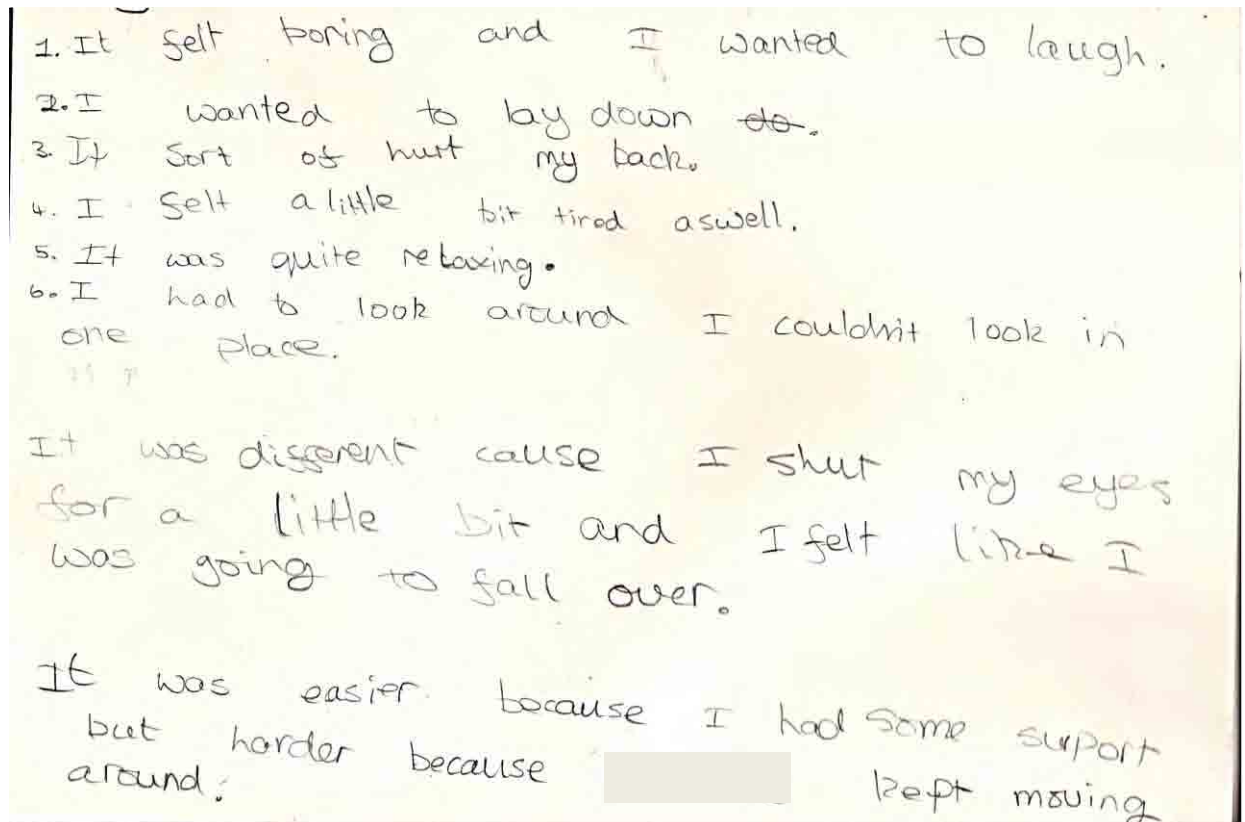 1. It felt boring and I wanted to laugh.
2. I wanted to lay down do.
3. It sort of hurt my back.
4. I felt a little bit tired aswell.
5. It was quite relaxing.
6. I had to look around I couldn't look in
one place.
It was different cause I shut my eyes
for a little bit and I felt like I
was going to fall over.
It was easier because I had some suport
but harder because kept moving
around.